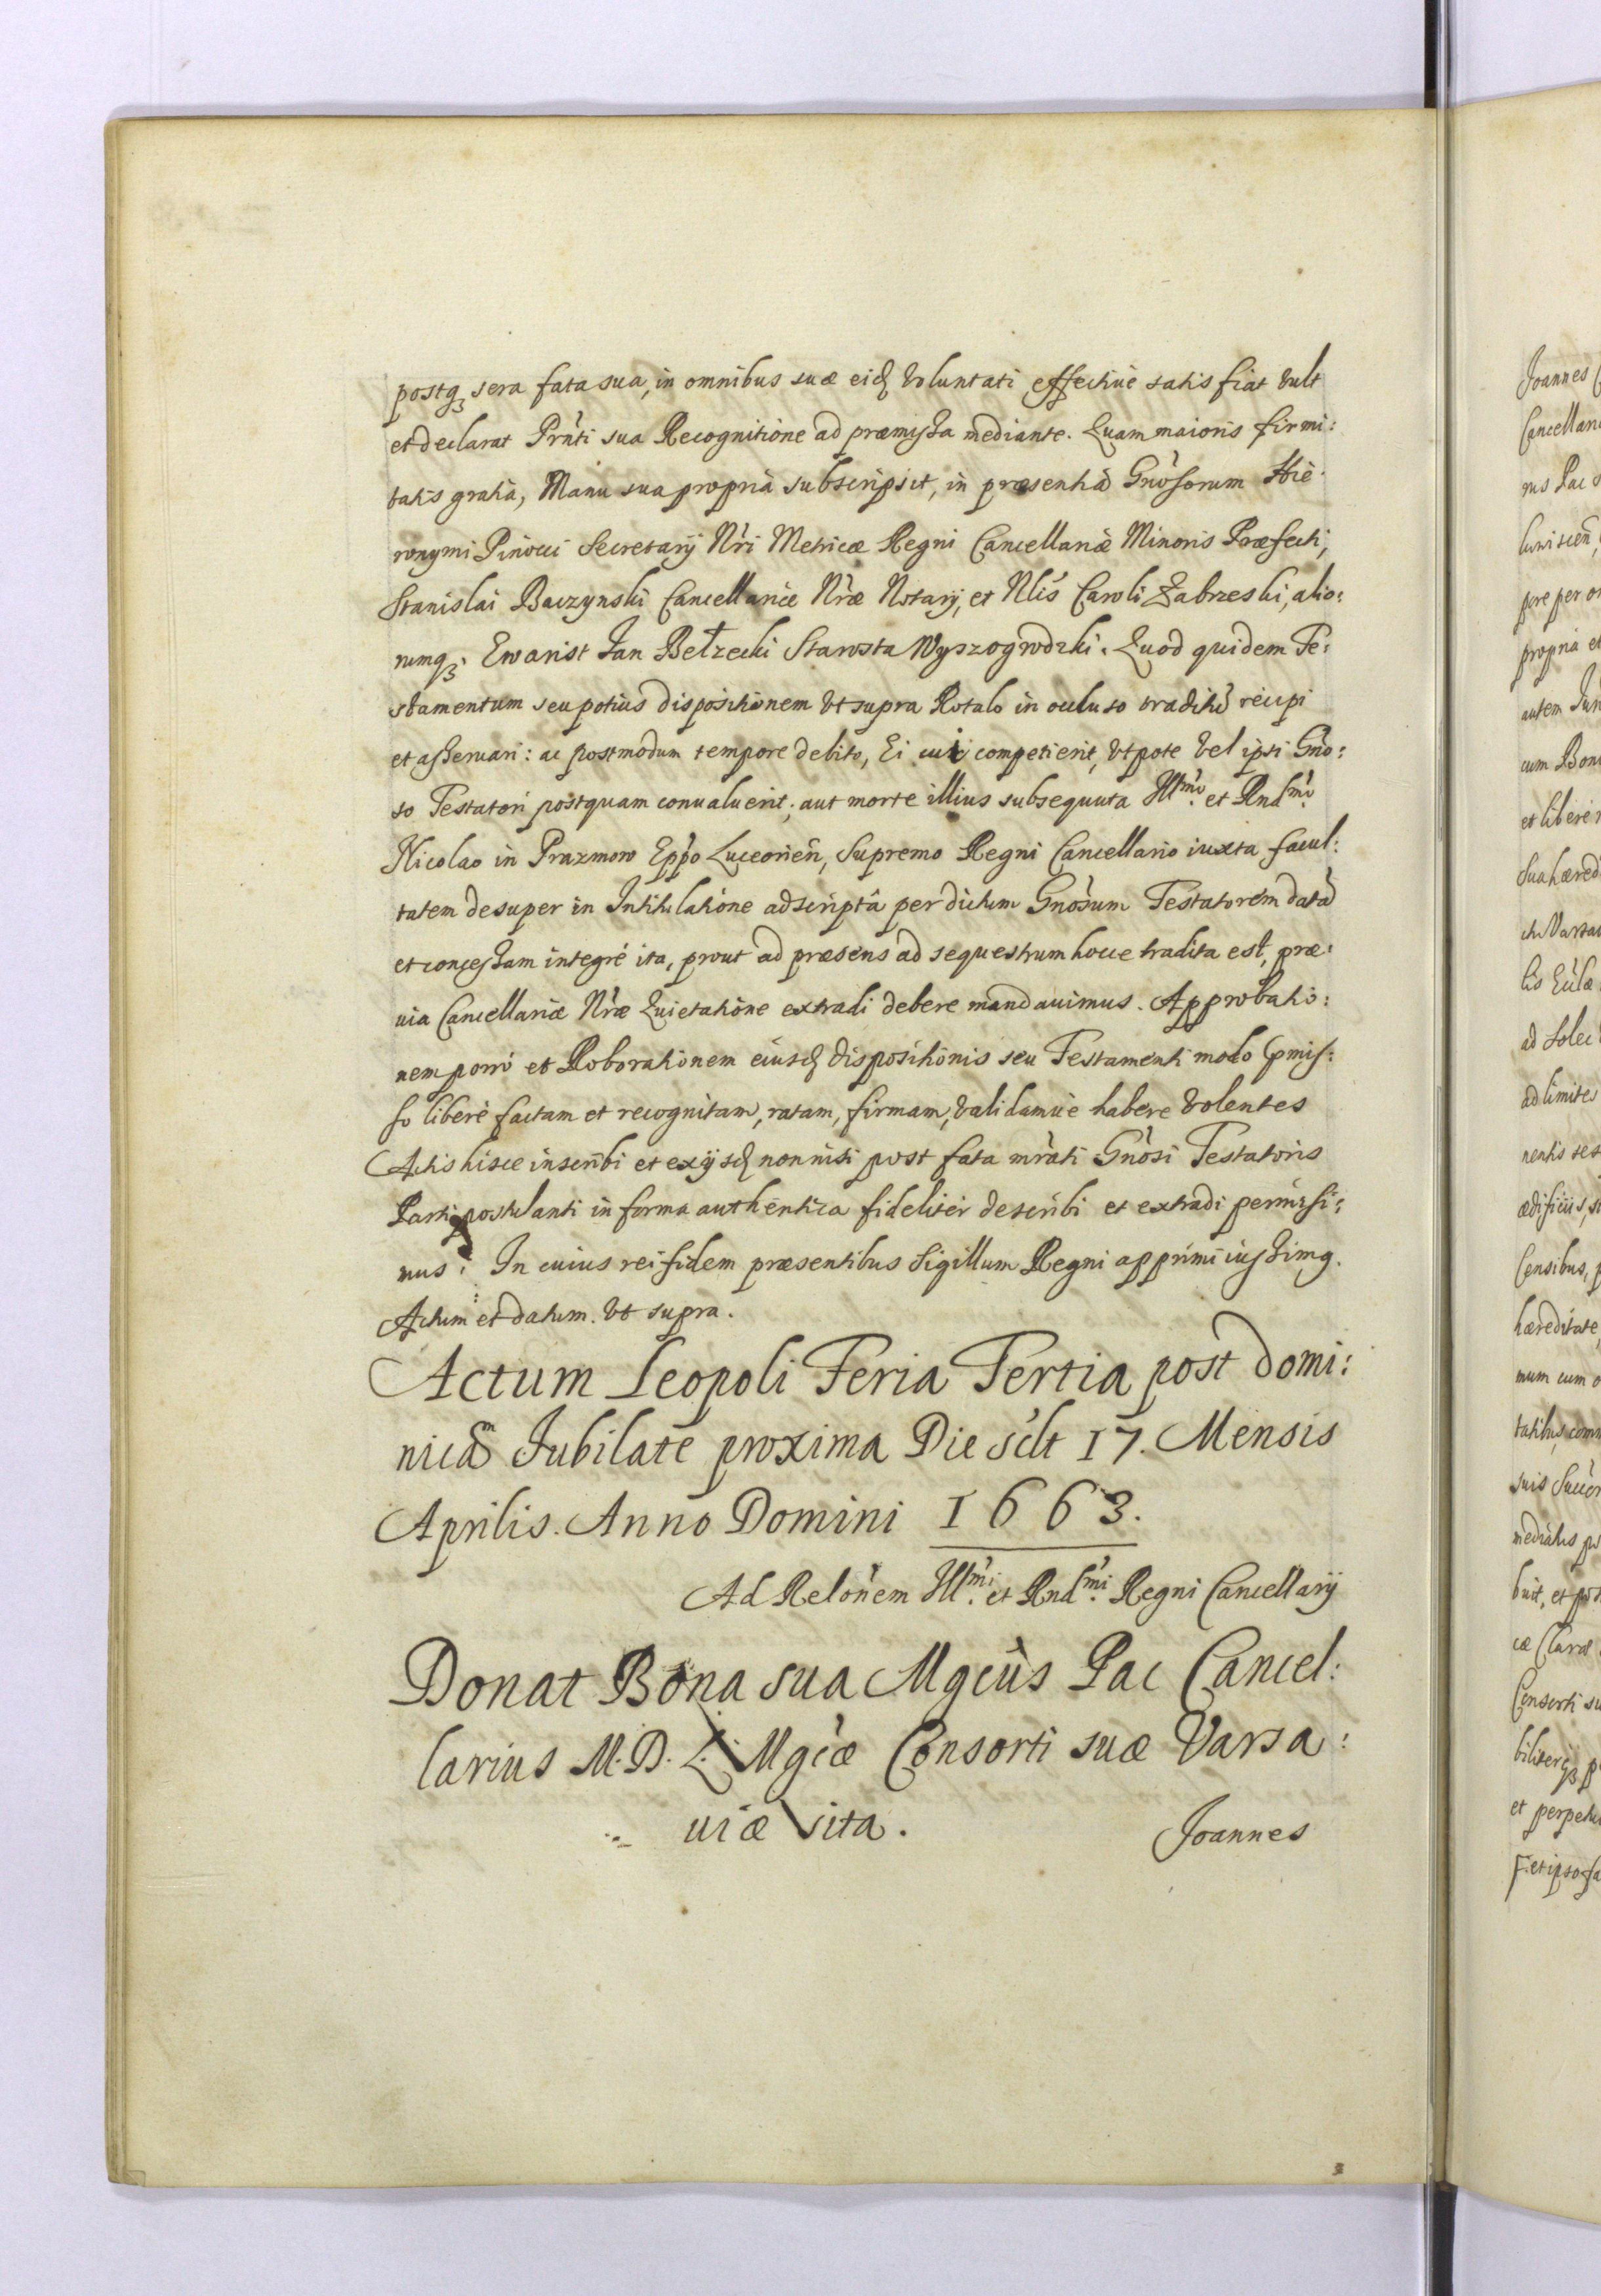 postq₃ sera fata sua, in omnibus suæ eid voluntati effectiue satis fiat vult
et declarat Prnti sua Recognitione ad præmissa mediante. Quam maioris firmi:
tatis gratiâ, Manu sua propriâ subscripsit, in præsentiâ Gnosorum Hie:
ronymi Pinocci Secretarij Nri Metricæ Regni Cancellariæ Minoris Præfecti,
Stanislai Baczynski Cancellariæ Nræ Notarij, et Nlis Caroli Zabrzeski, alio:
rumq₃. Ewarist Jan Bełzecki Starosta Wyszogrodzki. Quod quidem Te:
stamentum seu potius dispositionem vt supra Rotulo in occluso traditū recipi
et asseruari: ac postmodum tempore debito, Ei cui competierit, vtpote vel ipsi Gno:
so Testatori postquam conualuerit, aut morte illius subsequuta Illmo. et Rndmo.
Nicolao in Prazmow Eppo Luceorien, Supremo Regni Cancellario iuxta facul:
tatem desuper in Intitulatione adscriptâ per dictum Gnosum Testatorem datā
et concessam integrè ita, prout ad præsens ad sequestrum hocce tradita est, præ:
uia Cancellariæ Nræ Quietatione extradi debere mandauimus. Approbatio:
nem porrò et Roborationem eiusd dispositionis seu Testamenti modo pmis:
so liberè factam et recognitam, ratam, firmam, validamue habere volentes
Actis hisce inscribi et exijsd non nisi post fata mrati Gnosi Testatoris
Parti postulanti in forma authentica fideliter describi et extradi permisi:
mus. In cuius rei fidem præsentibus Sigillum Regni apprimi iussimq.
Actum et datum. vt supra.
Actum Leopoli Feria Tertia post domi:
nicam Jubilate proxima Die sclt 17. Mensis
Aprilis. Anno Domini 1663.
Ad Relonem Illmi. et Rndmi. Regni Cancellarij
Donat Bona sua Mgcus Pac Cancel:
larius M. D. L. Mgcæ Consorti suæ Varsa:
uiæ sita.
Joannes
Joannes
Cancellari
rus Pac
pore per
propria et
autem
cum Bon
et libere
sua hæred
ad limites
ædificiis,
Censibus,
hæreditate
mum cum
buit, et
Consorti su
et perpetu